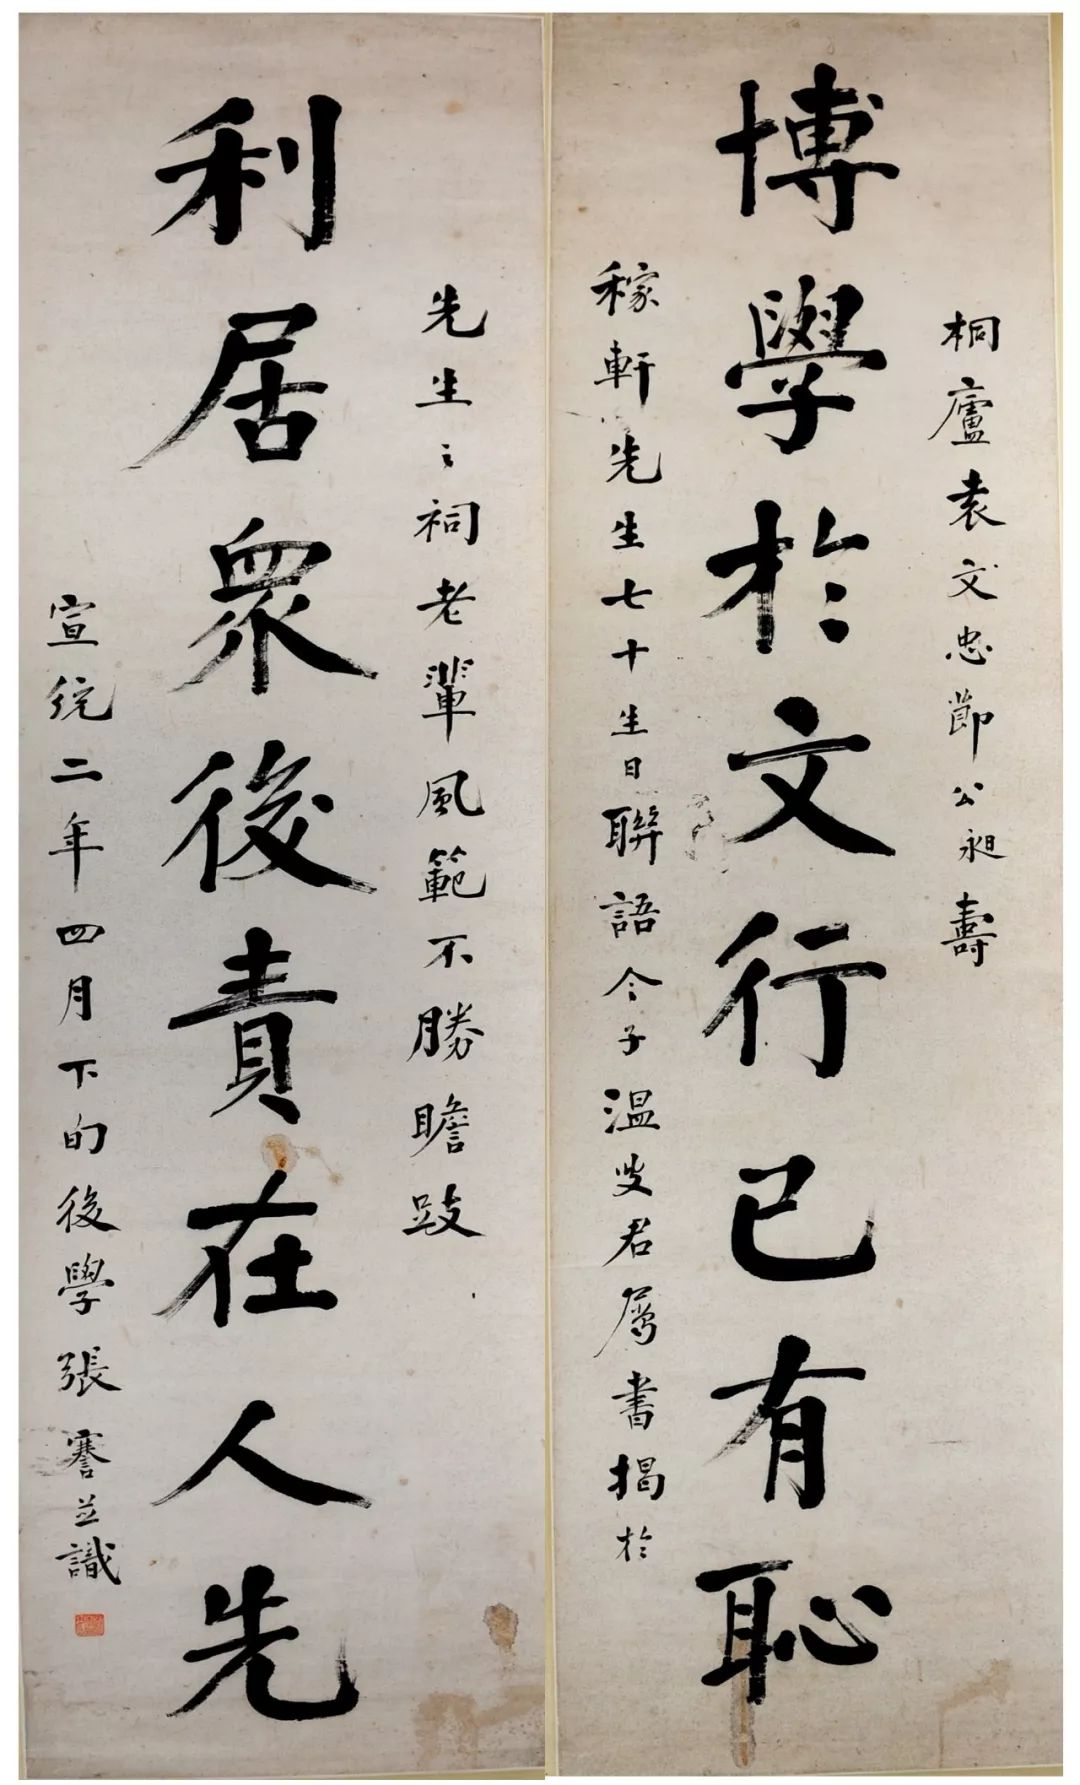 桐廬袁文忠節公昶壽
博學於文行己有恥
稼軒先生七十生日聯語令子溫叟君屬書揭於
先生之祠老輩風範不勝瞻跂
利居眾後責在人先
宣統二年四月下旬後學張謇並識